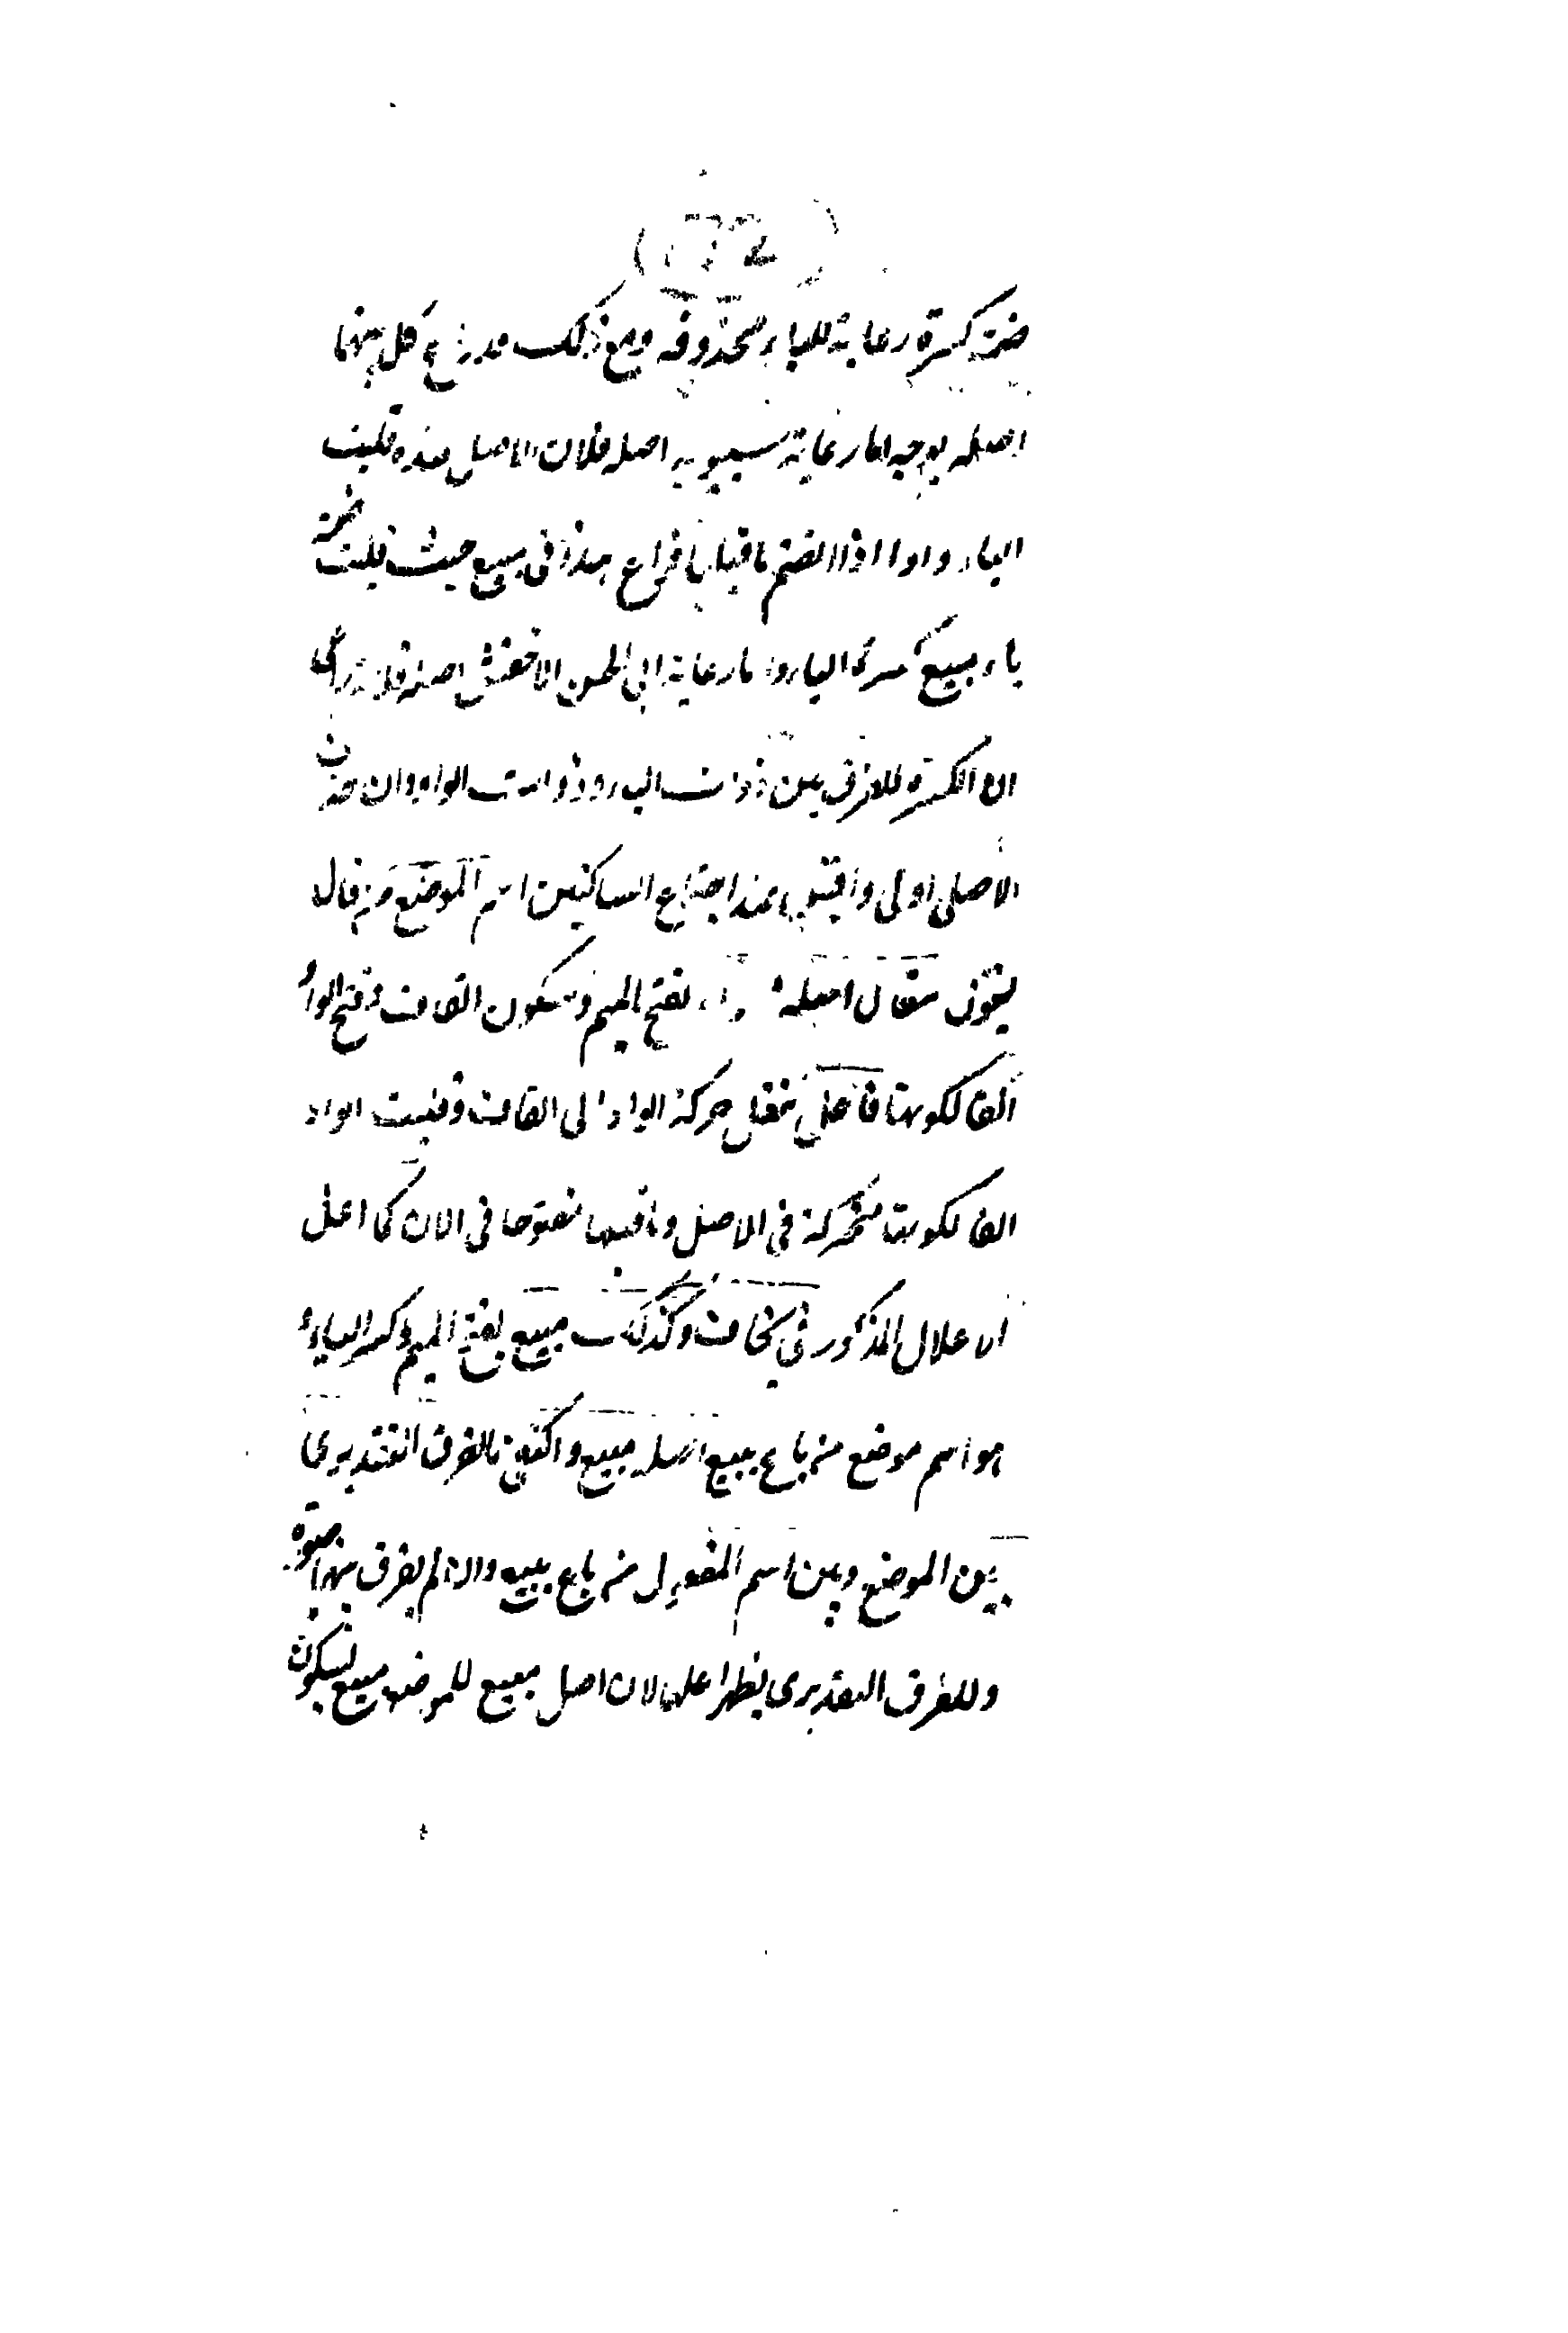 ضمته كسرة رعاية للياء المحذوفة ومع ذلك قد راع كل منهما
اصله بوجه اما رعاية سيبويه اصله فلان الاصل عنده قلبت
الياء واوا اذا انضم ما قبلها فراع هذا في مبيع حيث قلبت ضمة
ياء مبيع كسرة الياء واما رعاية ابي الحسن الاخفش اصله فلانه راعى
ان الكسرة للفرق بين ذوات الياء وذوات الواو وان حذف
الاصلي اولى واقيس عند اجتماع الساكنين اسم الموضع من قال
يقول مقال اصله بفتح الميم وسكون القاف وفتح الواو
الف لكونها فاعل بنقل حركة الواو الى القاف وقلبت الواو
الف لكونها متحركة في الاصل وما قبلها مفتوحا في الان كما اعل
الاعلال المذكور في يخاف وكذلك مبيع بفتح الميم وكسر الياء و
هو اسم موضع من باع يبيع اصله مبيع واكتفى بالفرق التقديري
بين الموضع وبين اسم المفعول من باع يبيع والا لم يفرق بينهما صورة
وللفرق التقديري يظهرا على لان اصل مبيع للموضع مبيع بسكون